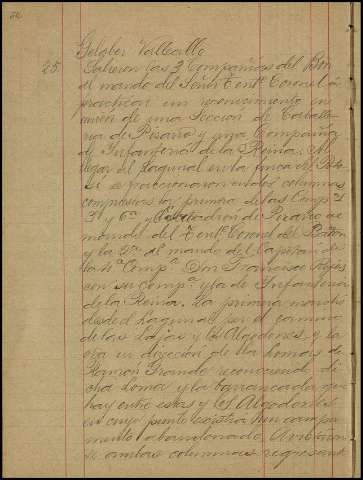 Gelaber Vallecillo
25 Salieron las 3 Compañias del Bon
al mando del Señor Tente Coronel á
practicar un reconocimiento en
union de una Seccion de Caballe
ria de Pizarro y una Compañia
de Infanteria de la Reina. Al
llegar al Lagunal en la finca
se fraccionaron en dos columnas,
compuestas la primera de las Comps
3ª y 6ª y Escuadron de Pizarro al
mando del Tente Coronel del Baton
y la 2ª al mando del Capitan de
la Compª Don Francisco Rojas
con su Compª y la de Infanteria
de la Reina. La primera marchó
desde el Lagunal por el camino
de las Lajas y los Algodones, y la
otra en direccion de la Lomas de
Ramon Grande reconociendo di
cha Loma y la barrancada que
hay entre estas y los Algodones
en cuyo punto encontra un campa
mento abandonado.
ambas columnas regresaron